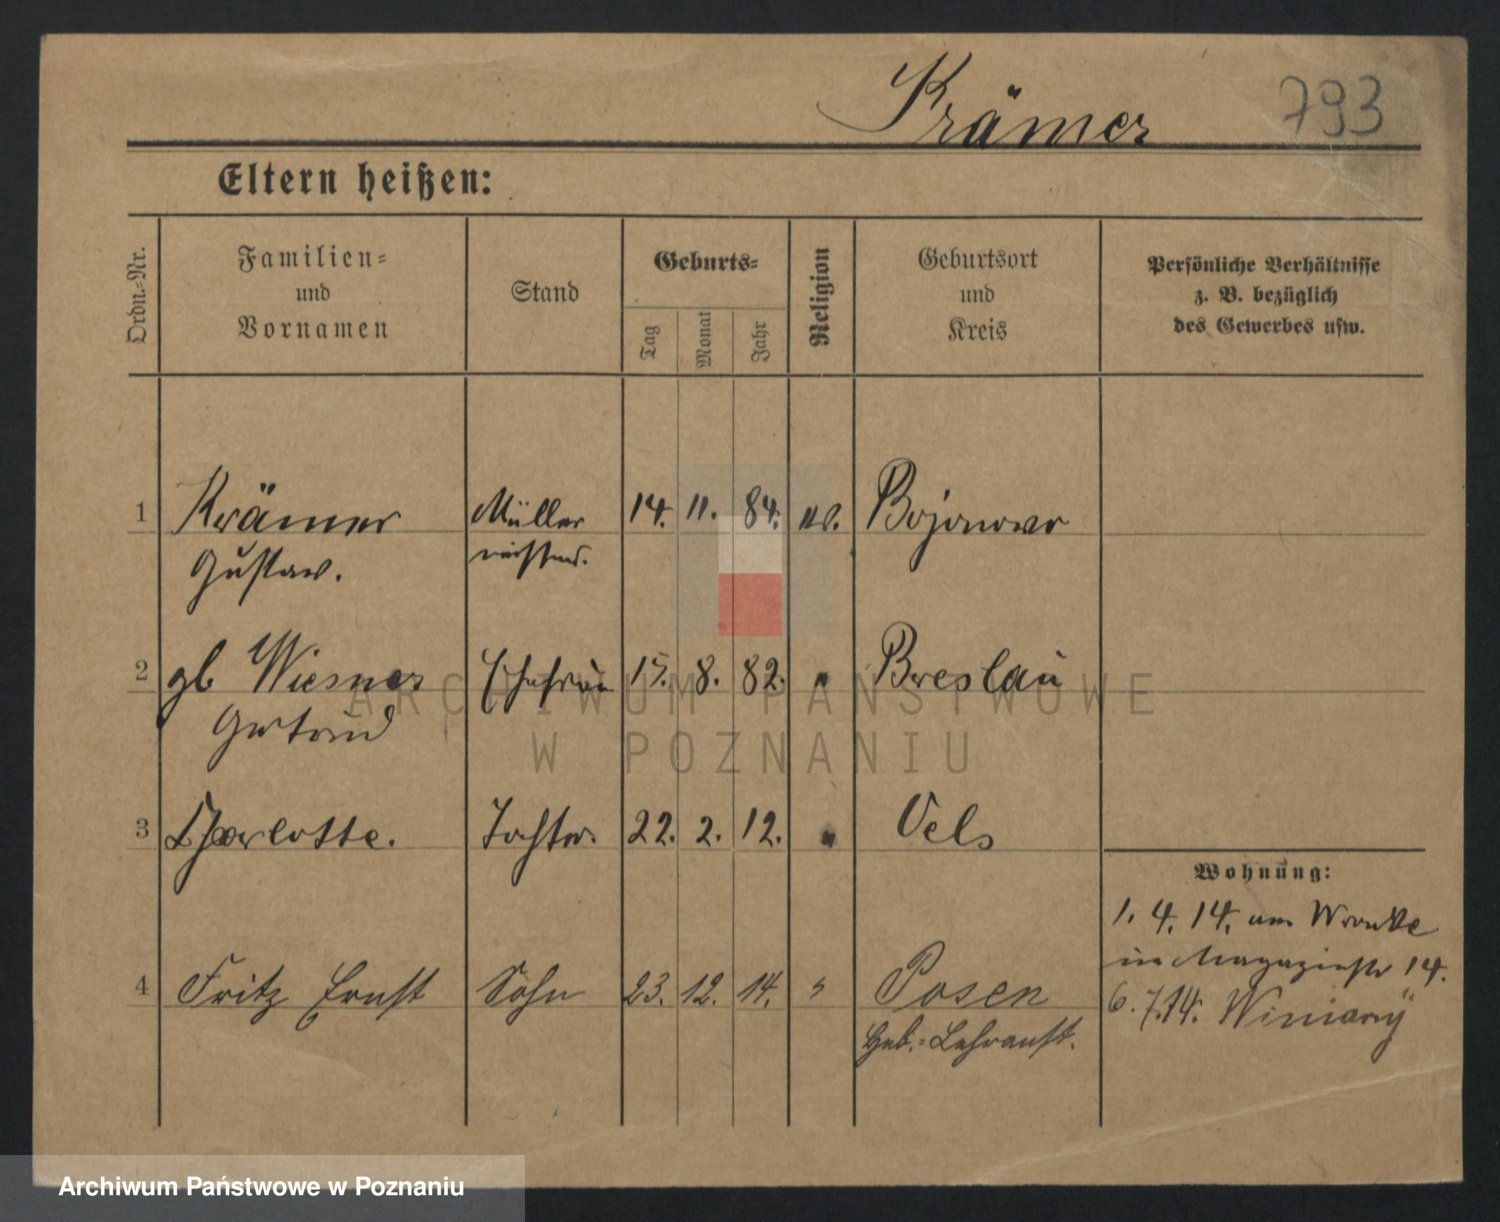 Krämer 793
Eltern heißen:
Ordn.-Nr. Familien- und Vornamen Stand Geburts- Tag Monat Jahr Religion Geburtsort und Kreis Persönliche Verhältnisse z. B. bezüglich des Gewerbes usw.
1 Krämer Müller 14. 11. 84. ev. Bojanowo
Gustav. meister.
2 gb Wiesner Ehefrau 15. 8. 82. " Breslau
Gertrud
3 Charlotte. Tochter. 22. 2. 12. " Oels
Wohnung:
1. 4. 14. aus Wronke
in Magazinstr 14.
4 Fritz Ernst Sohn 23. 12. 14. " Posen
6. 7. 14. Winiary
Heb.-Lehranst.
ARCHIWUM PAŃSTWOWE
W POZNANIU
Archiwum Państwowe w Poznaniu